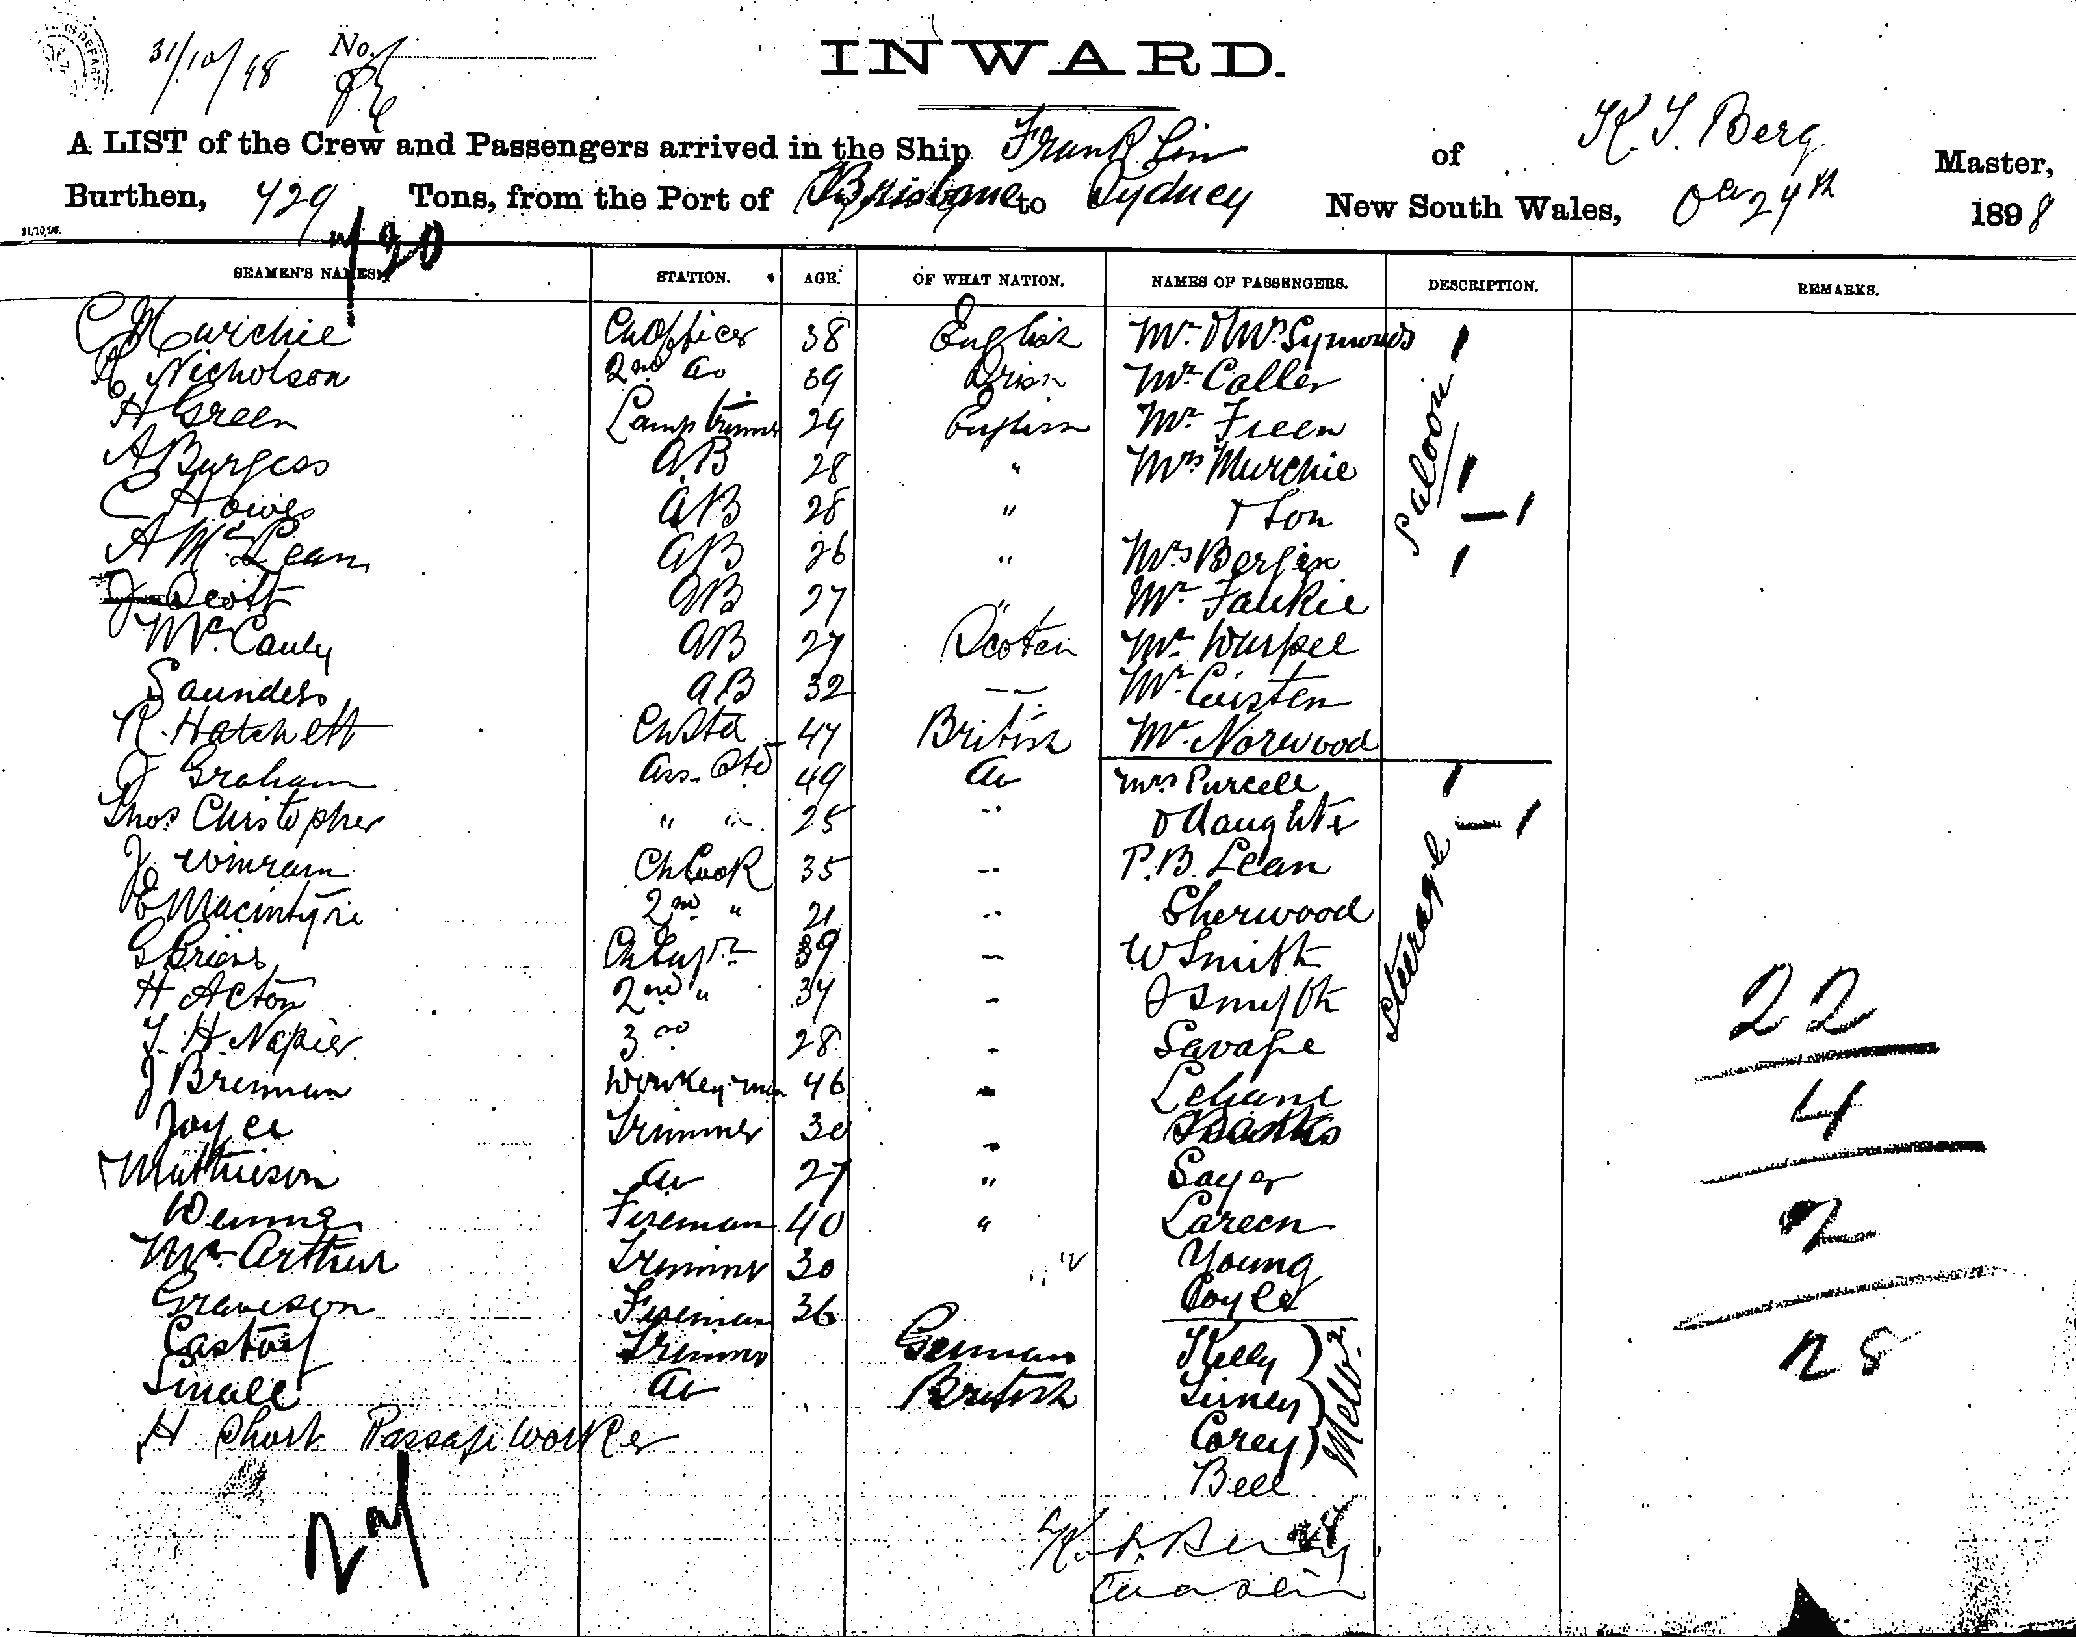 31/10/98 No.
INWARD.
A LIST of the Crew and Passengers arrived in the Ship Franklin of K. S. Berg Master,
Burthen, 729 Tons, from the Port of Brisbane to Sydney New South Wales, 29th 1898
31/10/98.
SEAMEN'S NAMES. STATION. AGE. OF WHAT NATION. NAMES OF PASSENGERS. DESCRIPTION. REMARKS.
C Murchie Ch Officer 38 English Mr & Mrs Symonds
Nicholson 2nd do 39 Mr Caller
H Green Lamp trimmer 29 English Mr Freen
A Burgess AB 28 " Mrs Murchie
C Howes AB 28 " & Son
A McLean AB 26 " Mrs Bergin
J Scott AB 27 " Mr
McCauly AB 27 Scotch Mr
Saunders AB 32 Mr
R. Hatchett Ch Std 47 British Mr Norwood
J Graham Ass. Std 49 do Mrs Purcell
Thos Christopher " " 25 " & daughter
J Winram Ch Cook 35 " P. B. Lean
E Macintyre 2nd " 21 " Sherwood
39 W Smith
H Acton 2nd " 34 Smyth
J. H. Napier 3rd 28 Savage
J Brennan 46 Lehane
Joyce Trimmer 30 "
Mathieson do 27 " Sayer
Fireman 40 " Lareen
McArthur Trimmer 30 " Young
Graveson Fireman 36 Coyle
Trimmer German Kelly
Small do British
H Short Passage worker Corey
Bell
Saloon
Steerage
22
4
2
28
K. S. Berg